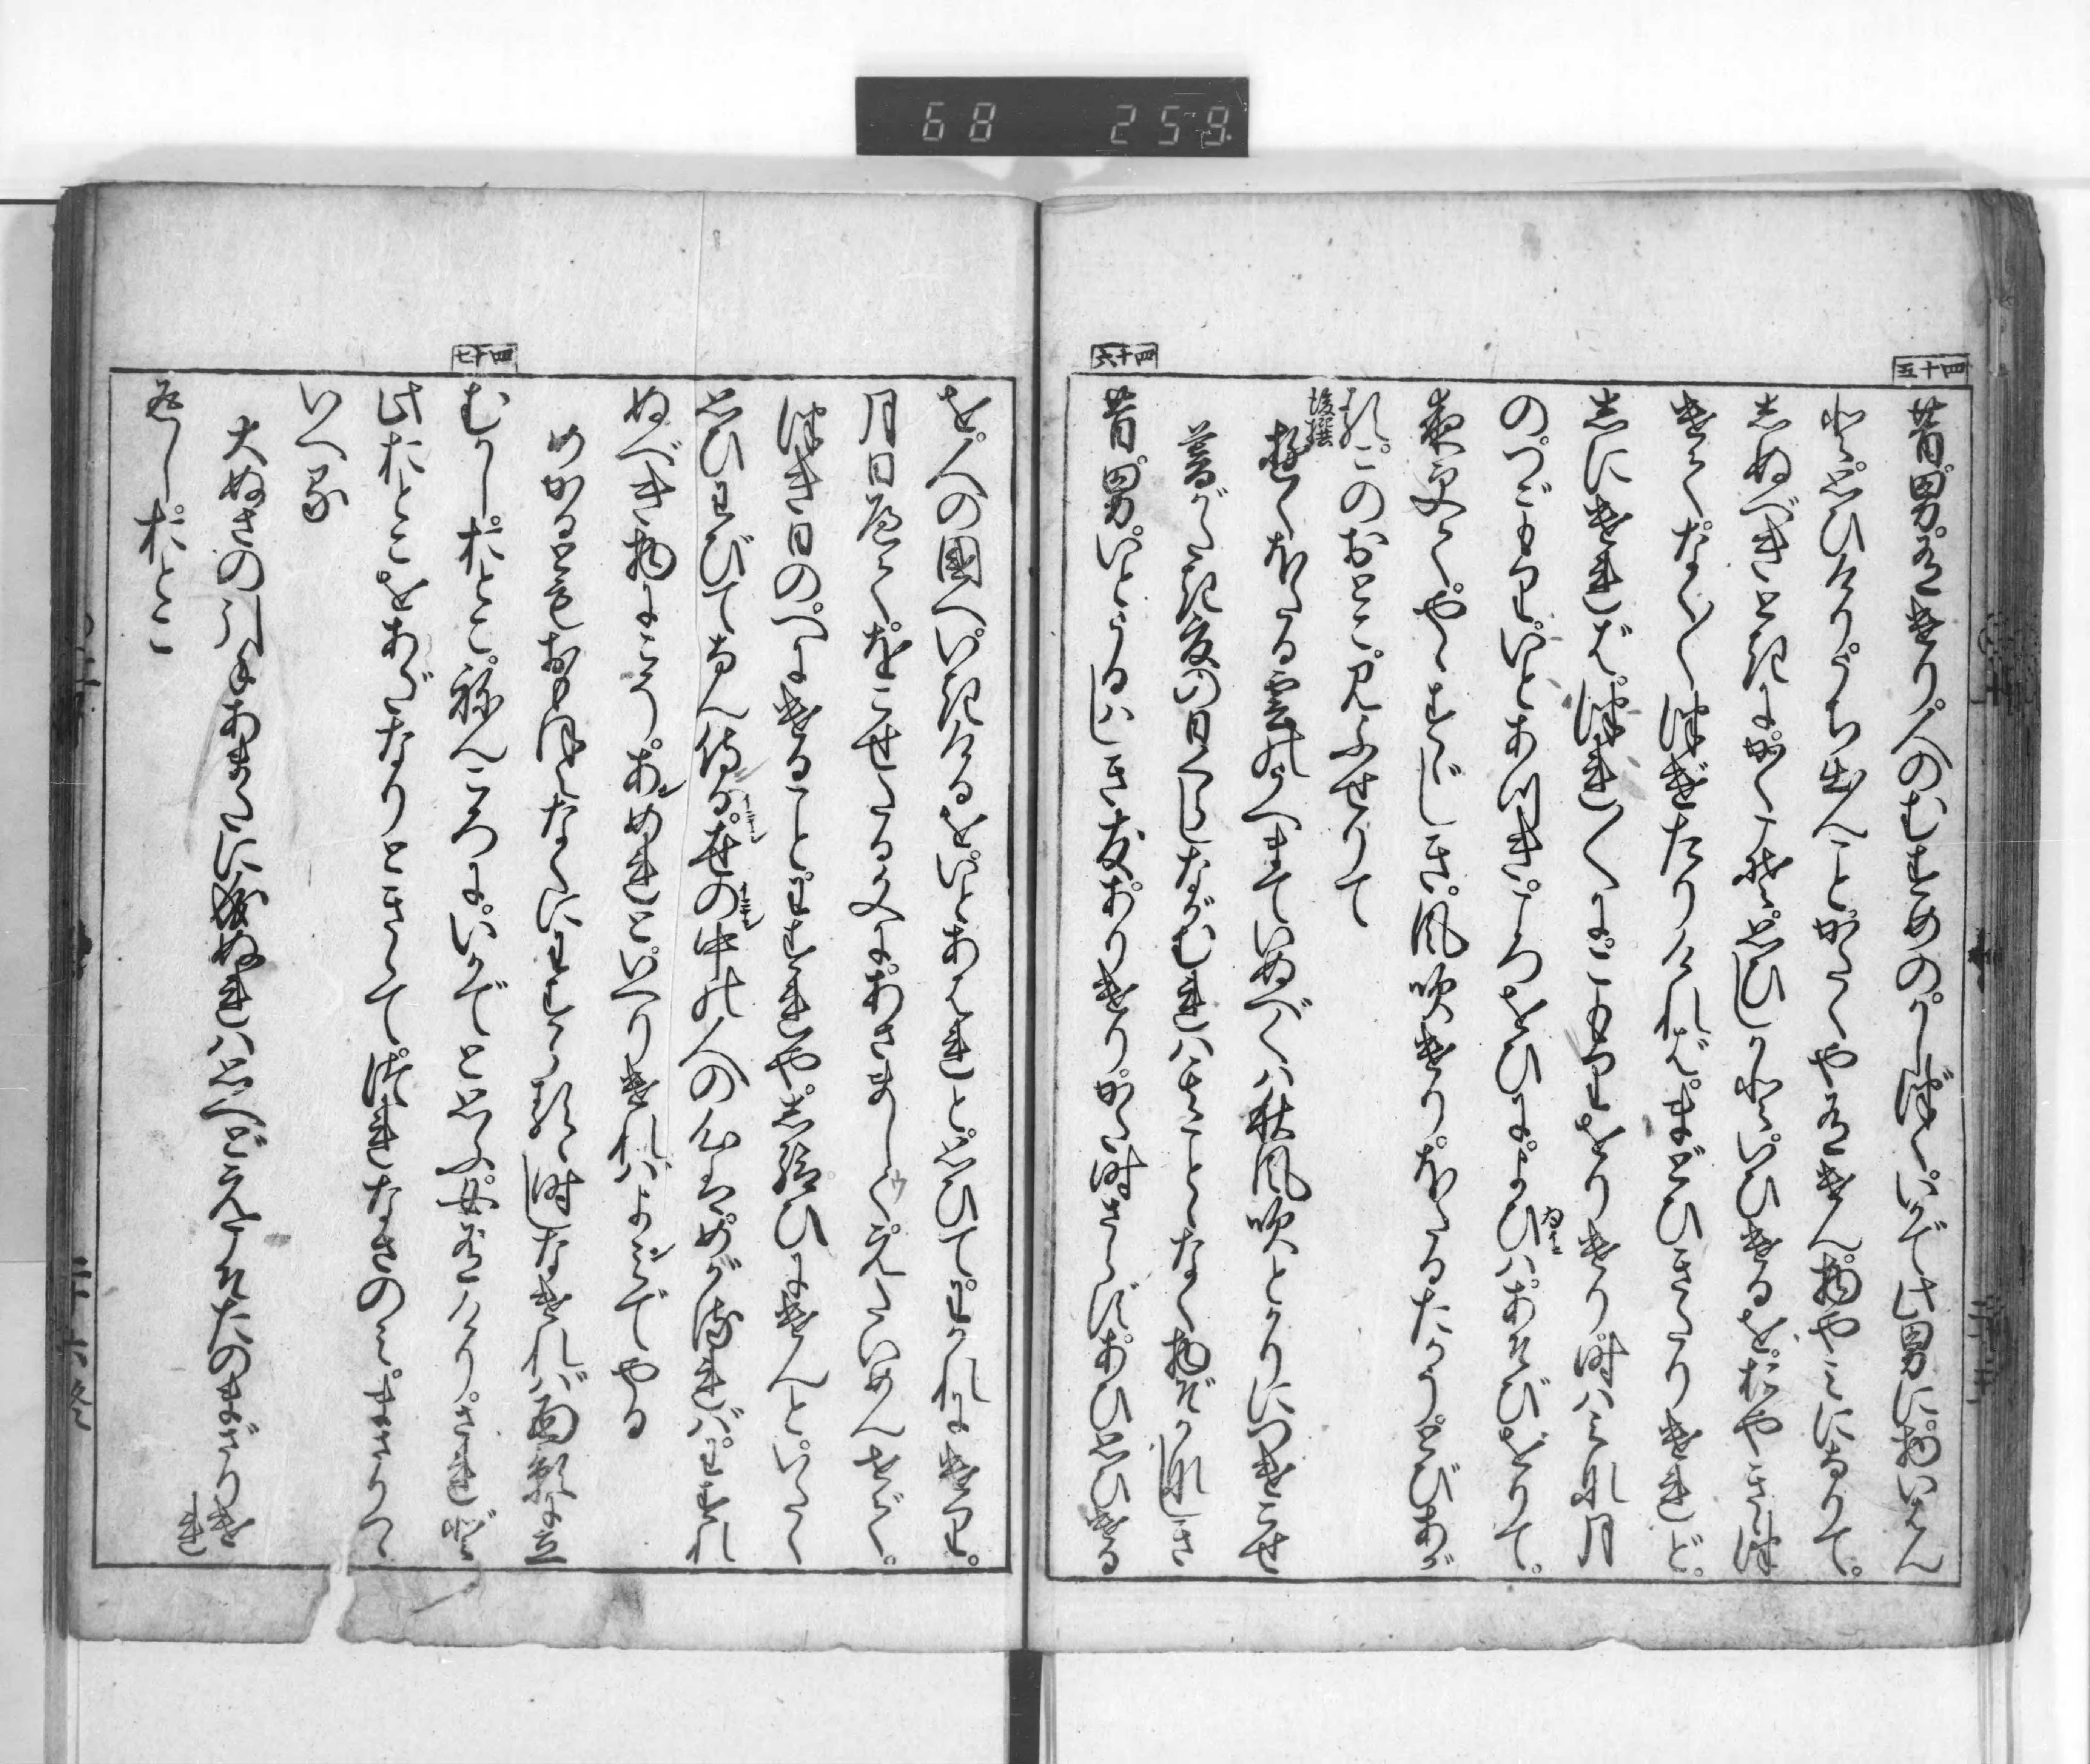 四十五
昔男有けり人のむすめのかしづくいかで此男に物いはん
と思ひけりうち出んことかたくや有けん物やみになりて
しぬべきときにかくこそ思ひしかといひけるをおやきゝつ
けてなく〳〵つげたりければまどひきたりけれど
しにければつれ〴〵とこもりをりけり時はみな月
のつごもりいとあつきころほひによひはあそびをりて
夜更てやゝすゞしき風吹けりほたるたかうとびあが
るこのおとこ見ふせりて
後撰
行ほたる雲のうへまていぬべくは秋風吹とかりにつげこせ
暮がたき夏の日くらしながむれはそのことゝなく物ぞかなしき
四十六
昔男いとうるはしき友ありけりかた時さらずあひ思ひける
を人の國へいきけるをいとあはれと思ひてわかれにけり
月日へてをこせたる文にあさましくえたいめんせで
つき日のへにけることわすれやし給ひにけんといたく
思ひわびてなん侍る世の中の人の心はめかるればわすれ
ぬべき物にこそあめれといへりければよみてやる
めかるともおもほえなくにわすらるゝ時しなければ面影に立
四十七
むかしおとこねんころにいかでと思ふ女有けりされど
此おとこをあだなりときゝてつれなさのみまさりつゝ
いへる
大ぬさのひくてあまたに成ぬれは思へどえこそたのまざりけれ
返しおとこ
68 259